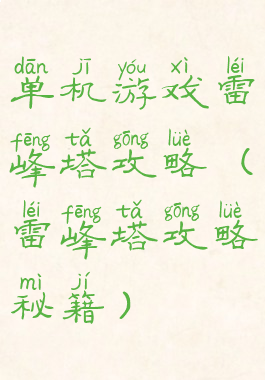 dān jī yóu xì léi
单机游戏雷
fēng tǎ gōng lüè
峰塔攻略（
léi fēng tǎ gōng lüè
雷峰塔攻略
mì jí
秘籍）